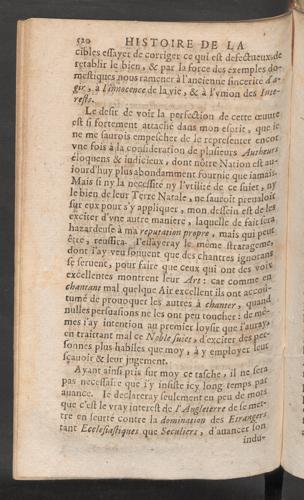 520 HISTOIRE DE LA
cibles essayer de corriger ce qui est defectueux, de
retablir le bien, & par la force des exemples do-
mestiques nous ramener à l'ancienne sincerité d'a-
gir, à l'innocence de la vie, & à l'vnion des Inte-
rests.
Le desir de voir la perfection de cette œuure
est si fortement attaché dans mon esprit, que ie
ne me saurois empescher de le representer encor
vne fois à la consideration de plusieurs Autheurs
eloquens & iudicieux, dont nôtre Nation est au-
iourd'huy plus abondamment fournie que iamais.
Mais si ny la necessité ny l'vtilité de ce sujet, ny
le bien de leur Terre Natale, ne sauroit preualoir
sur eux pour s'y appliquer, mon dessein est de les
exciter d'vne autre maniere, laquelle de fait sera
hazardeuse à ma reputation propre, mais qui peut
être, reussira. I'essayeray le méme stratageme,
dont i'ay veu souuent que des chantres ignorans
se seruent, pour faire que ceux qui ont des voix
excellentes montrent leur Art: car comme en
chantant mal quelque Air excellent ils ont accoû-
tumé de prouoquer les autres à chanter, quand
nulles persuasions ne les ont peu toucher: de mé-
mes i'ay intention au premier loysir que i'auray,
en traittant mal ce Noble sujet, d'exciter des per-
sonnes plus habiles que moy, à y employer leur
sçauoir & leur jugement.
Ayant ainsi pris sur moy ce tasche, il ne sera
pas necessaire que i'y insiste icy long-temps par
auance. Ie declareray seulement en peu de mots
que c'est le vray interest de l'Angleterre de se met-
tre en seurté contre la domination des Etrangers
tant Ecclesiastiques que Seculiers, d'auancer son
indu-